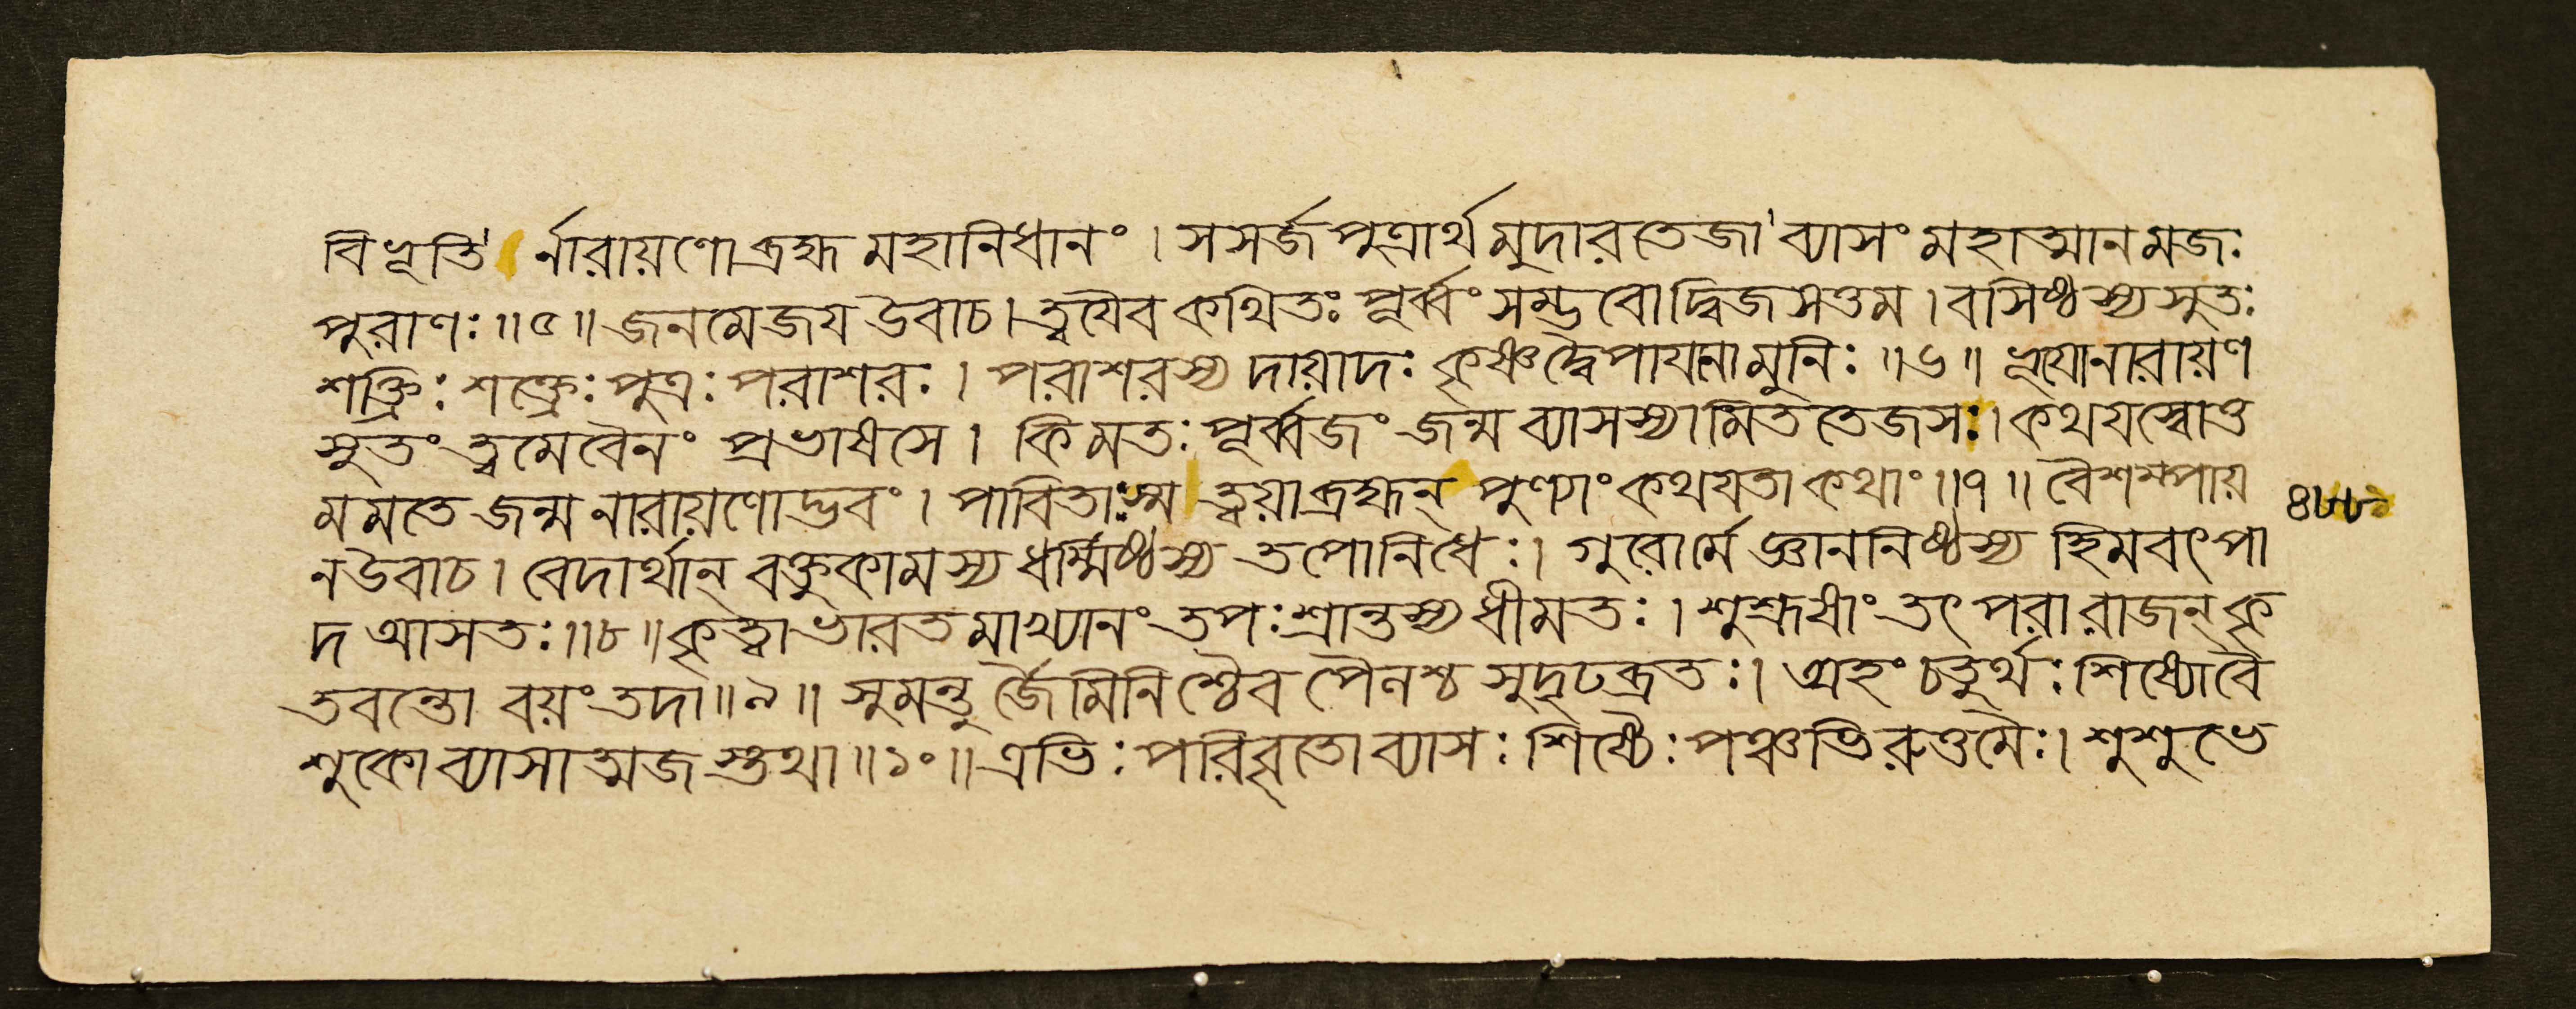 বিভূতি র্নারায়ণো ব্রহ্ম মহানিধানং । সসর্জ পুত্রার্থ মুদারতেজা ব্যাসং মহাত্মানমজঃ
পুরাণঃ ॥৫॥ জনমেজয উবাচ । ত্বযৈব কথিতঃ পূর্ব্বং সম্ভবো দ্বিজসত্তম । বসিষ্ঠস্য সুতঃ
শক্ত্রিঃ শক্ত্রেঃ পুত্রঃ পরাশরঃ । পরাশরস্য দায়াদঃ কৃষ্ণদ্বৈপাযনো মুনিঃ ॥৬॥ ভূযো নারায়ণ
সুতং ত্বমেবৈনং প্রভাষসে । কিমতঃ পূর্ব্বজং জন্ম ব্যাসস্যামিততেজসঃ । কথযস্বোত্ত
মমতে জন্ম নারায়ণোদ্ভবং । পাবিতাঃ স্ম ত্বয়া ব্রহ্মন্ পুণ্যাং কথযতা কথাং ॥৭॥ বৈশম্পায়
ন উবাচ । বেদার্থান্ বক্তুকামস্য ধর্ম্মিষ্ঠস্য তপোনিধেঃ । গুরোর্মে জ্ঞাননিষ্ঠস্য হিমবৎপা
দ আসতঃ ॥৮॥ কৃত্বা ভারতমাখ্যানং তপঃশ্রান্তস্য ধীমতঃ । শুশ্রূষাং তৎপরা রাজন্ কৃ
তবন্তো বয়ং তদা ॥৯॥ সুমন্তু র্জৈমিনিশ্চৈব পৈনশ্চ সুদৃঢব্রতঃ । অহং চতুর্থঃ শিষ্যো বৈ
শুকো ব্যাসাত্মজস্তথা ॥১০॥ এভিঃ পরিবৃতো ব্যাসঃ শিষ্যৈঃ পঞ্চভিরুত্তমৈঃ । শুশুভে